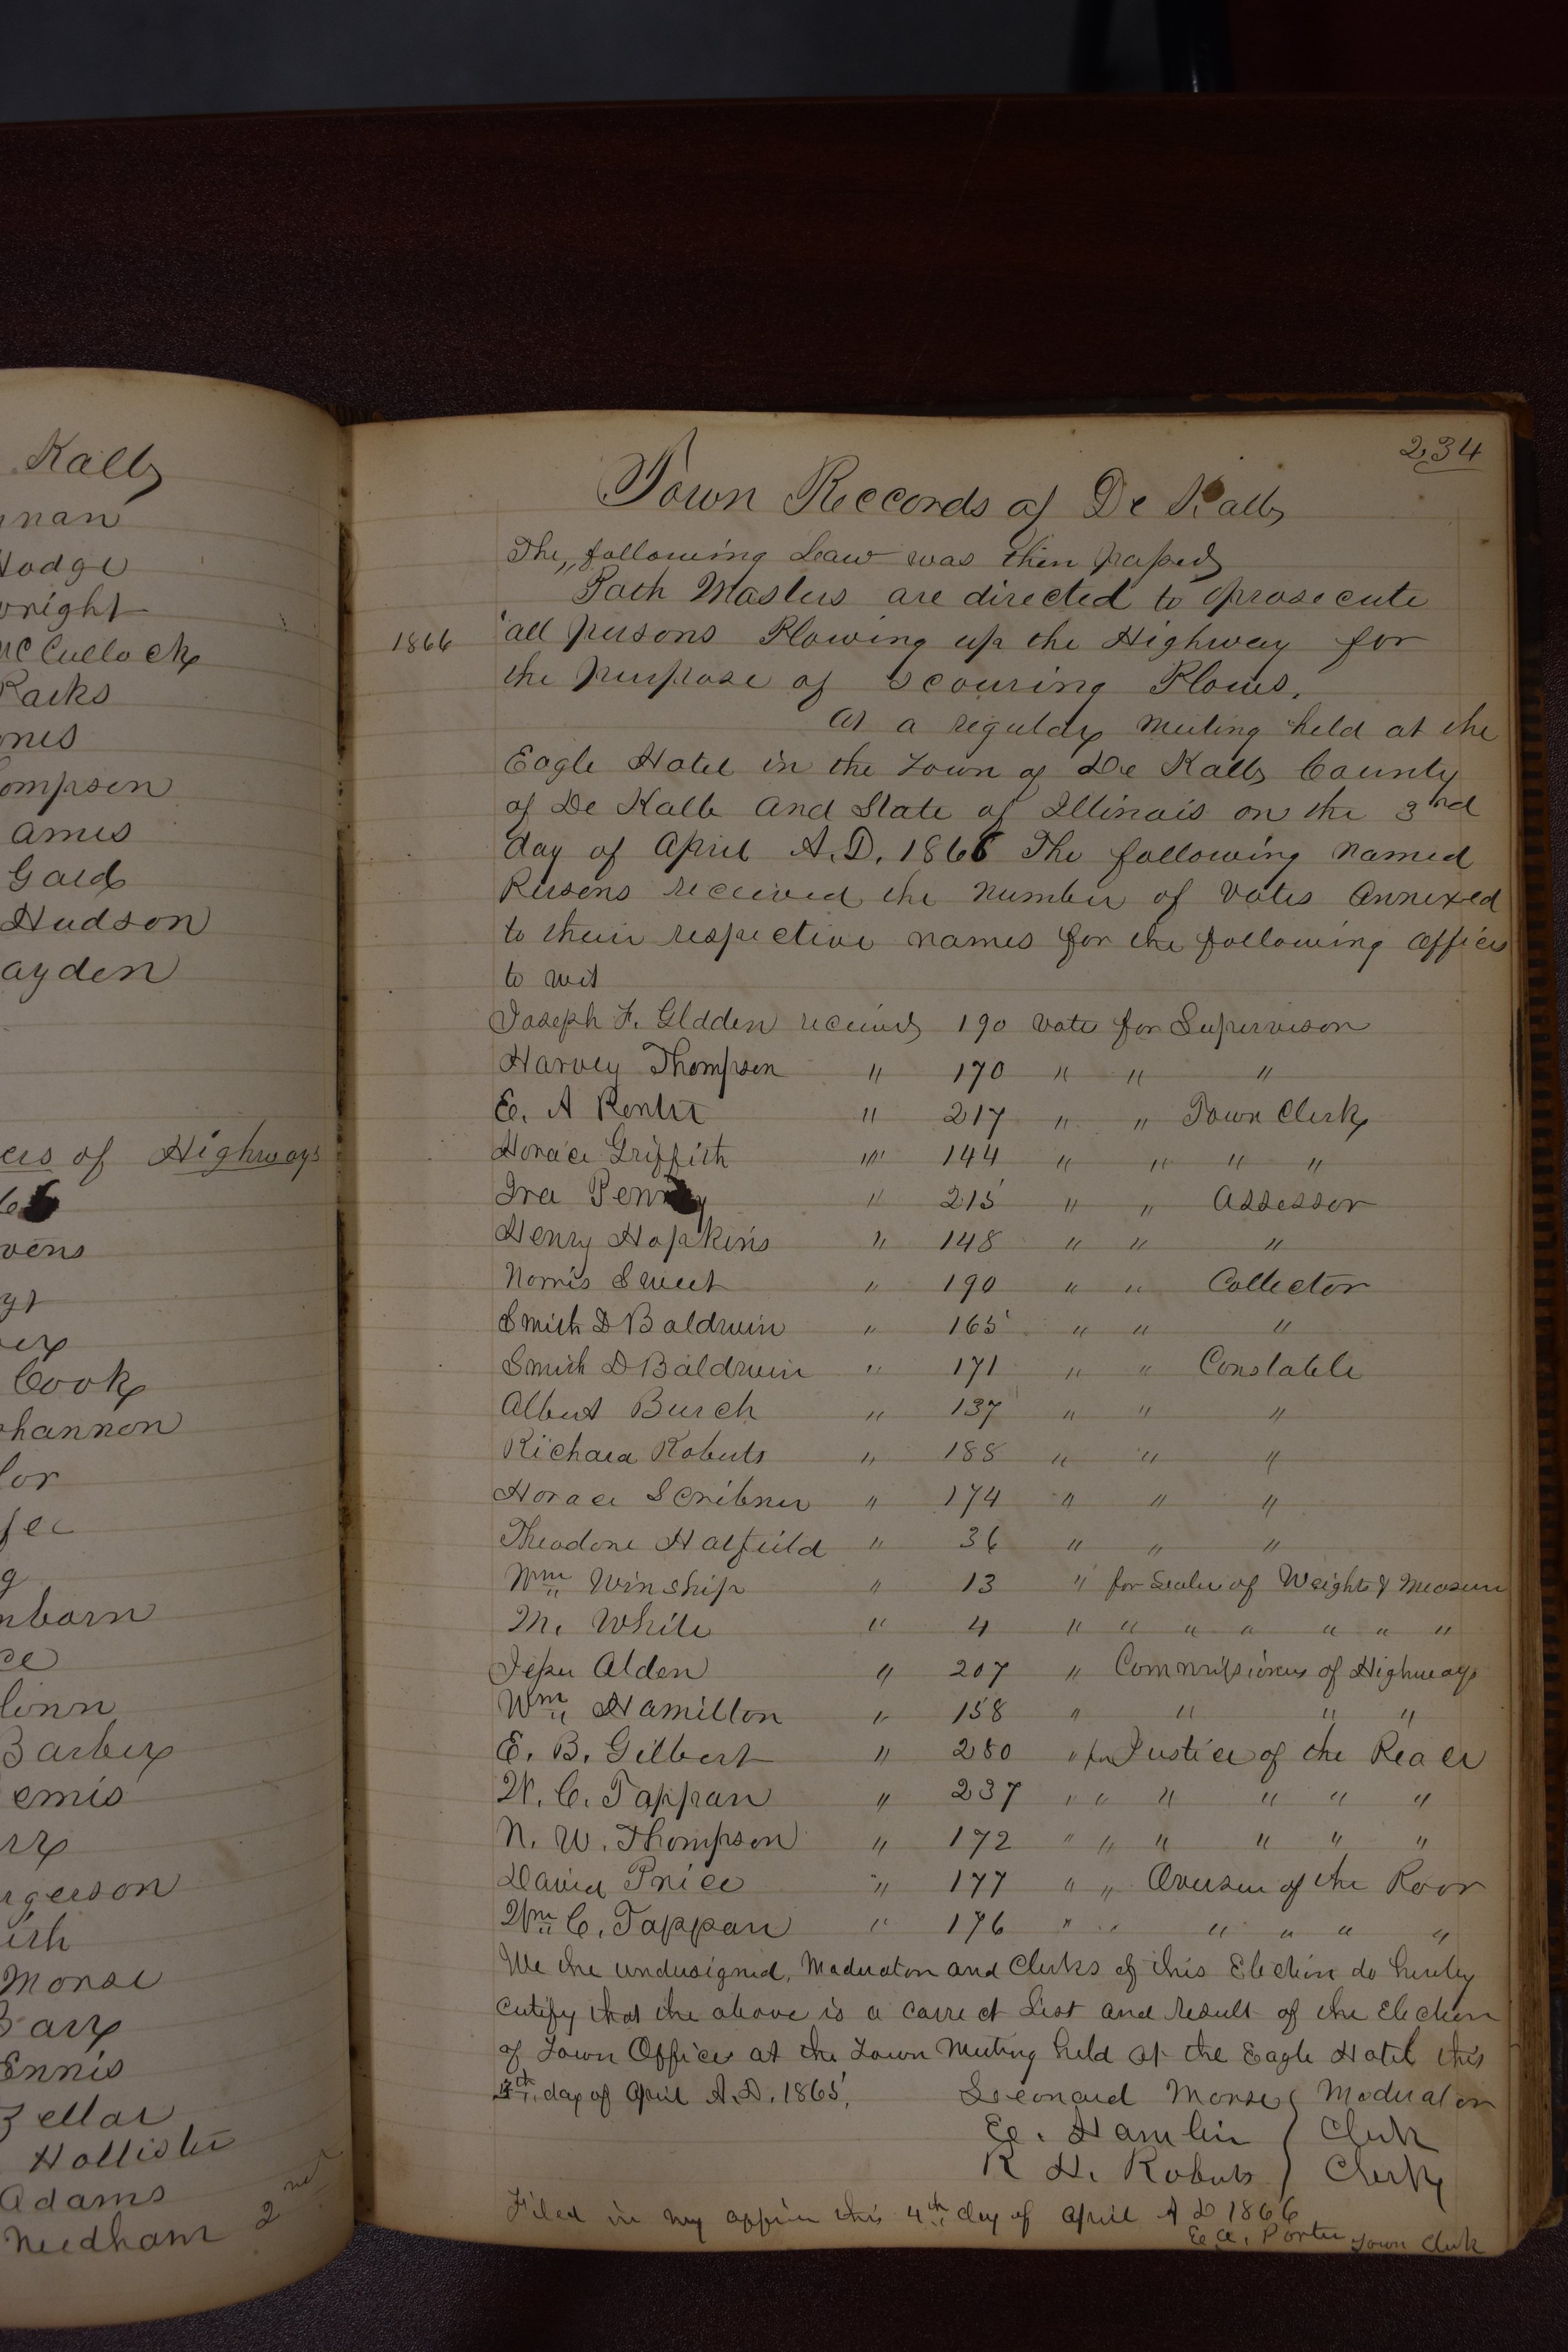 Kalb
nan
Hodge
wright
McCullock
Racks
ones
ompson
ames
Gard
Hudson
ayden
ers of Highways
vens
Cook
hannon
lor
nborn
ce
linn
Barber
emis
rgerson
ish
Morse
Barr
Ennis
Zellar
Hollister
Adams
Needham
234
Town Records of De Kalb
The,, following Law was then passed
Path Masters are directed to prosecute
1866 all persons Plowing up the Highway for
the purpose of scouring Plows.
At a regular meeting held at the
Eagle Hotel in the Town of De Kalb County
of De Kalb and State of Illinois on the 3rd
day of April A.D. 1866 The following named
Persons received the number of votes annexed
to their respective names for the following offices
to wit
Joseph F. Gldden received 190 vote for Supervisor
Harvey Thompson " 170 " " "
E. A Porter " 217 " " Town Clerk
Horace Griffith " 144 " " " "
Ira Penny " 215 " " Assessor
Henry Hopkins " 148 " " "
Norris Sweet " 190 " " Collector
Smith D Baldwin " 165 " " "
Smith D Baldwin " 171 " " Constable
Albert Burch " 137 " " "
Richard Roberts " 188 " " "
Horace Scribner " 174 " " "
Theodore Hatfield " 36 " " "
Wm Winship " 13 " for Sealer of Weights & Measure
M. White " 4 " " " " " " "
Jesse Alden " 207 " Commissioners of Highways
Wm Hamilton " 158 " " " "
E. B. Gilbert " 280 " for Justice of the Peace
W. C. Tappan " 237 " " " " " "
N. W. Thompson " 172 " " " " " "
David Price " 177 " " Overseer of the Poor
Wm C. Tappan " 176 " " " " " "
We the undersigned, Moderator and Clerks of this Election do hereby
certify that the above is a correct List and result of the Election
of Town Officers at the Town Meeting held at the Eagle Hotel this
day of April A.D. 1865, Leonard Morse } Moderator
E. Hamlin } Clerk
R H. Roberts } Clerk
Filed in my office this 4th day of April A D 1866
E. A. Porter Town Clerk
2